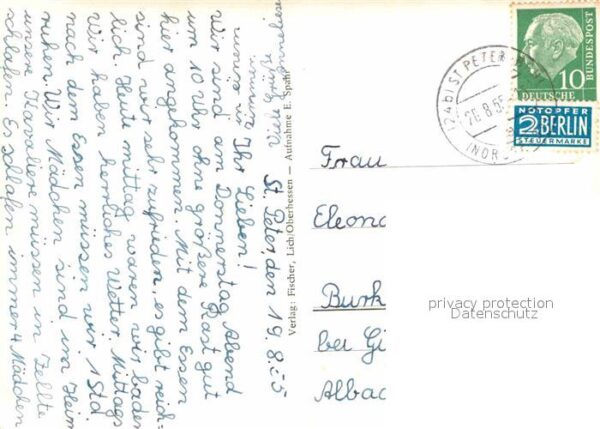 St. Peter, den 19.8.55
Ihr Lieben!
Wir sind am Donnerstag Abend
um 10 Uhr ohne größere Rast gut
hier angekommen. Mit dem Essen
sind wir sehr zufrieden, es gibt reich-
lich. Heute mittag waren wir baden
Wir haben herrliches Wetter. Mittags
nach dem Essen müssen wir 1 Std.
ruhen. Wir Mädchen sind im Heim
unsere Kavaliere müssen in Zellte
schlafen. Es schlafen immer 4 Mädchen
Viele
Verlag: Fischer, Lich/Oberhessen — Aufnahme E. Spahr
DEUTSCHE
BUNDESPOST
10
NOTOPFER
2 BERLIN
STEUERMARKE
(24b) ST PETER
26.8.55
(NORD
Frau
Eleono
Burk
bei Gi
Albac
privacy protection
Datenschutz